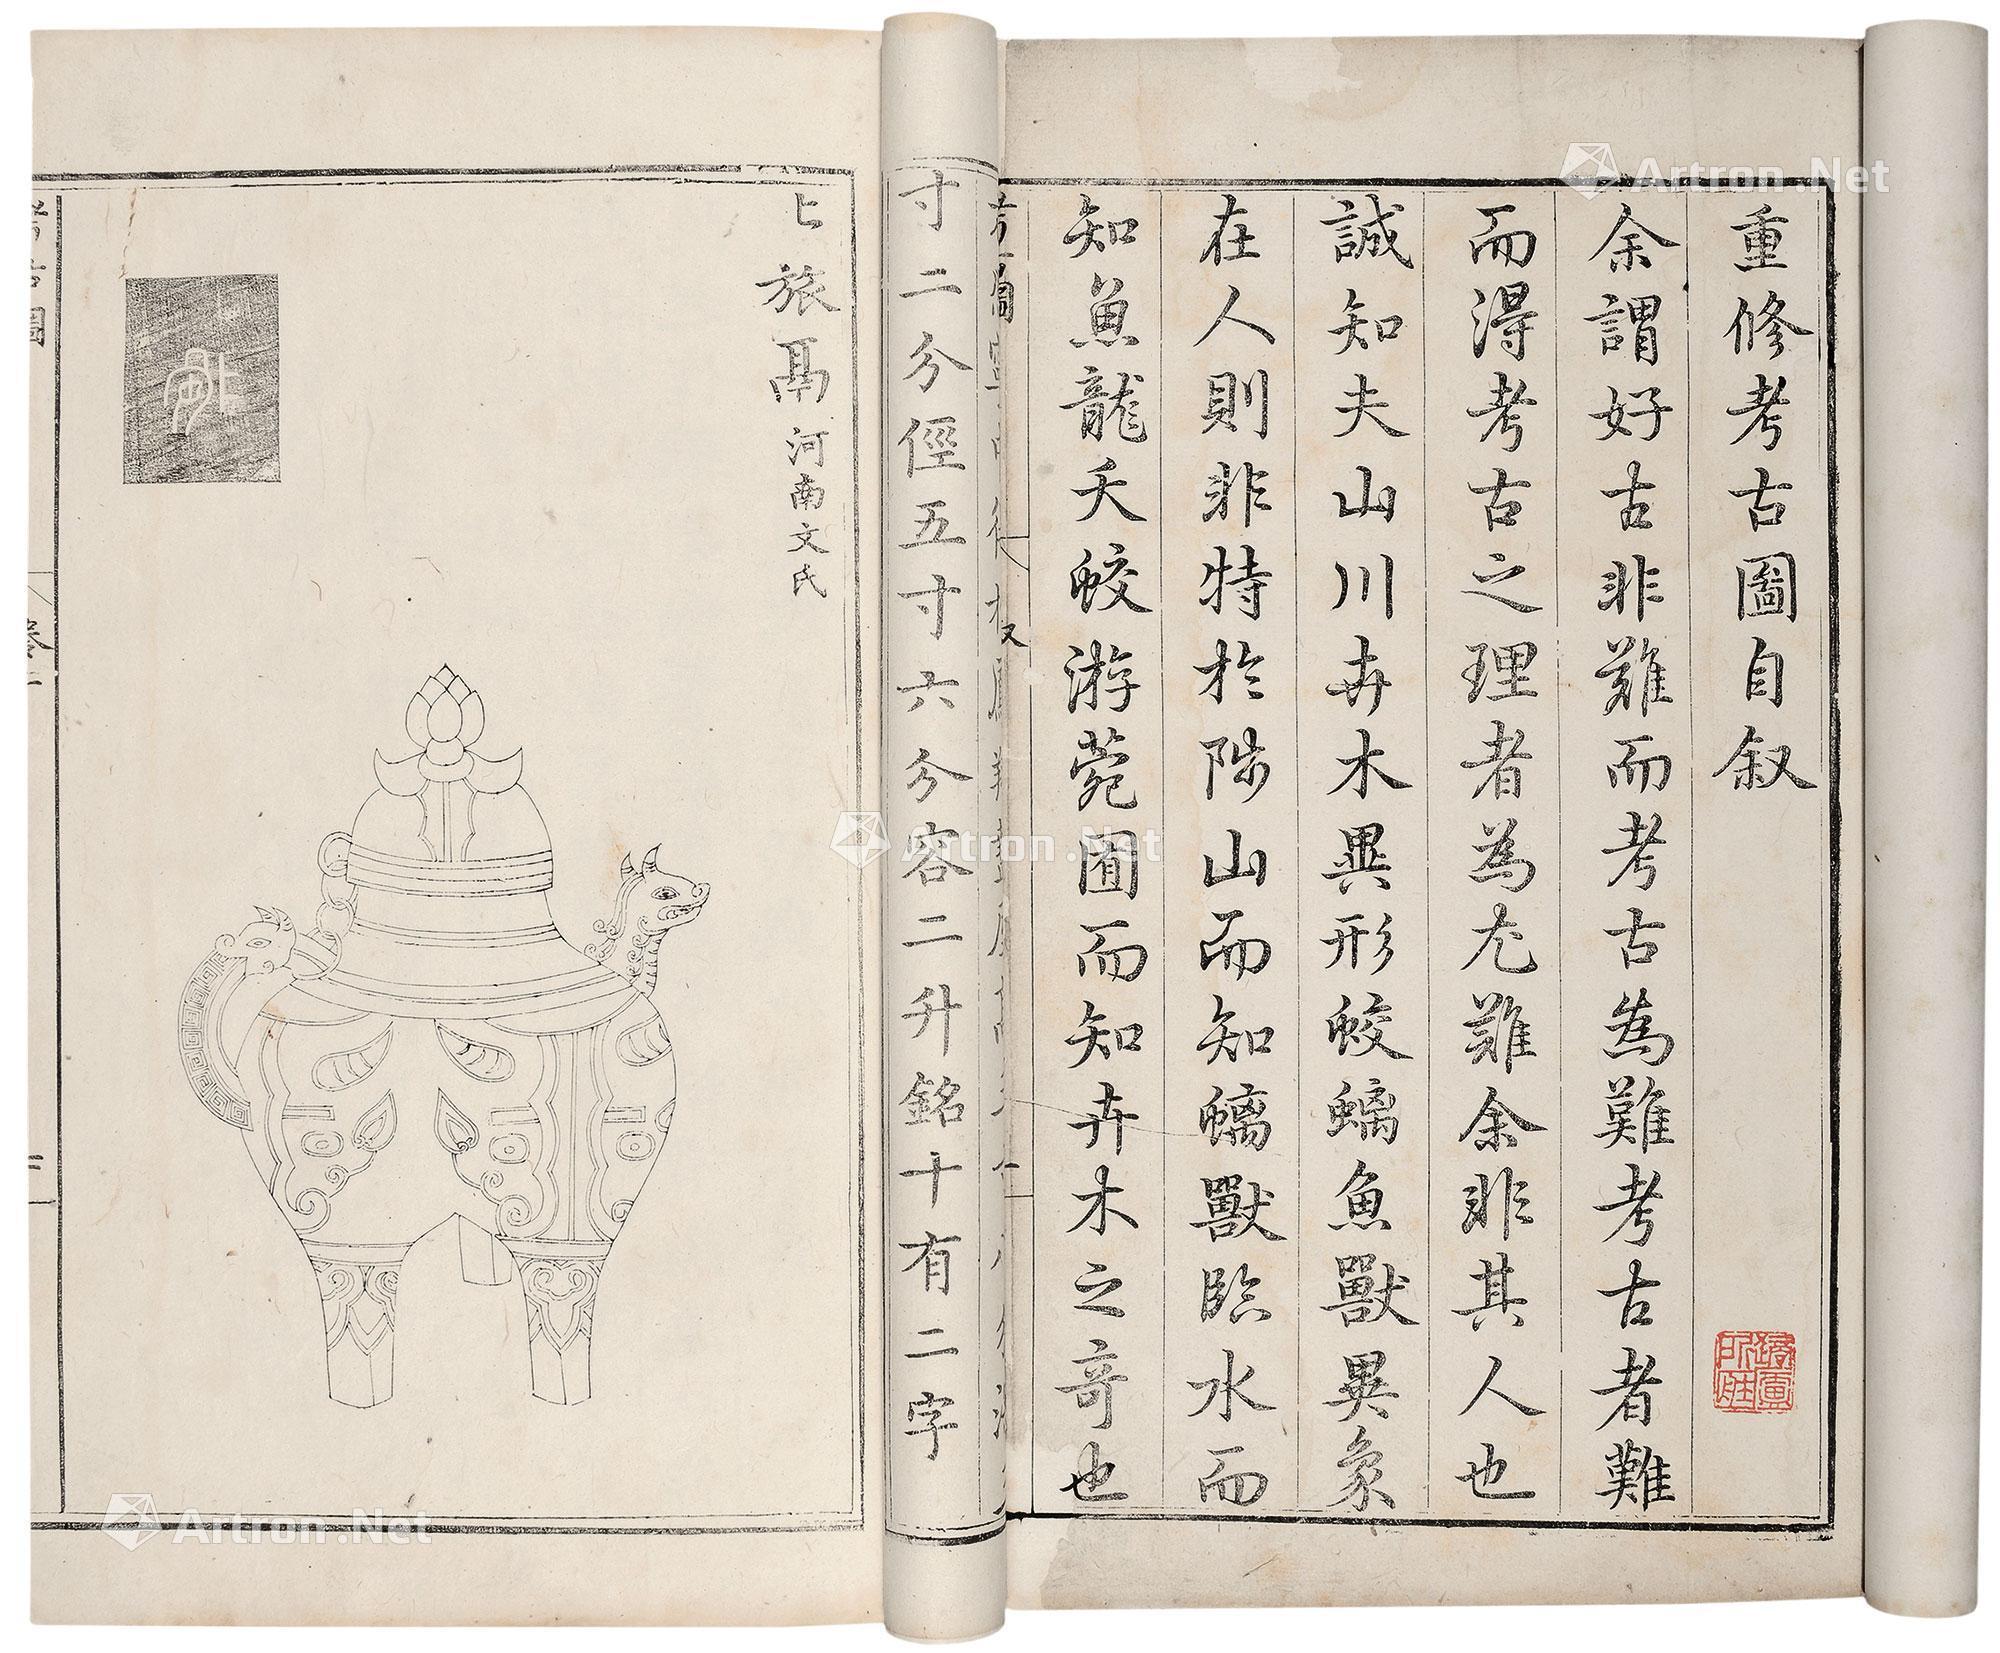 重修考古圖自叙
余謂好古非難而考古為難考古者難
而得考古之理者為尤難余非其人也
誠知夫山川卉木異形蛟螭魚獸異象
在人則非特於陟山而知螭獸臨水而
知魚龍夭蛟游菀囿而知卉木之竒也
寸二分徑五寸六分容二升銘十有二字
旅鬲 河南文氏
考古圖
Artron.Net
Artron.Net
Artron.Net